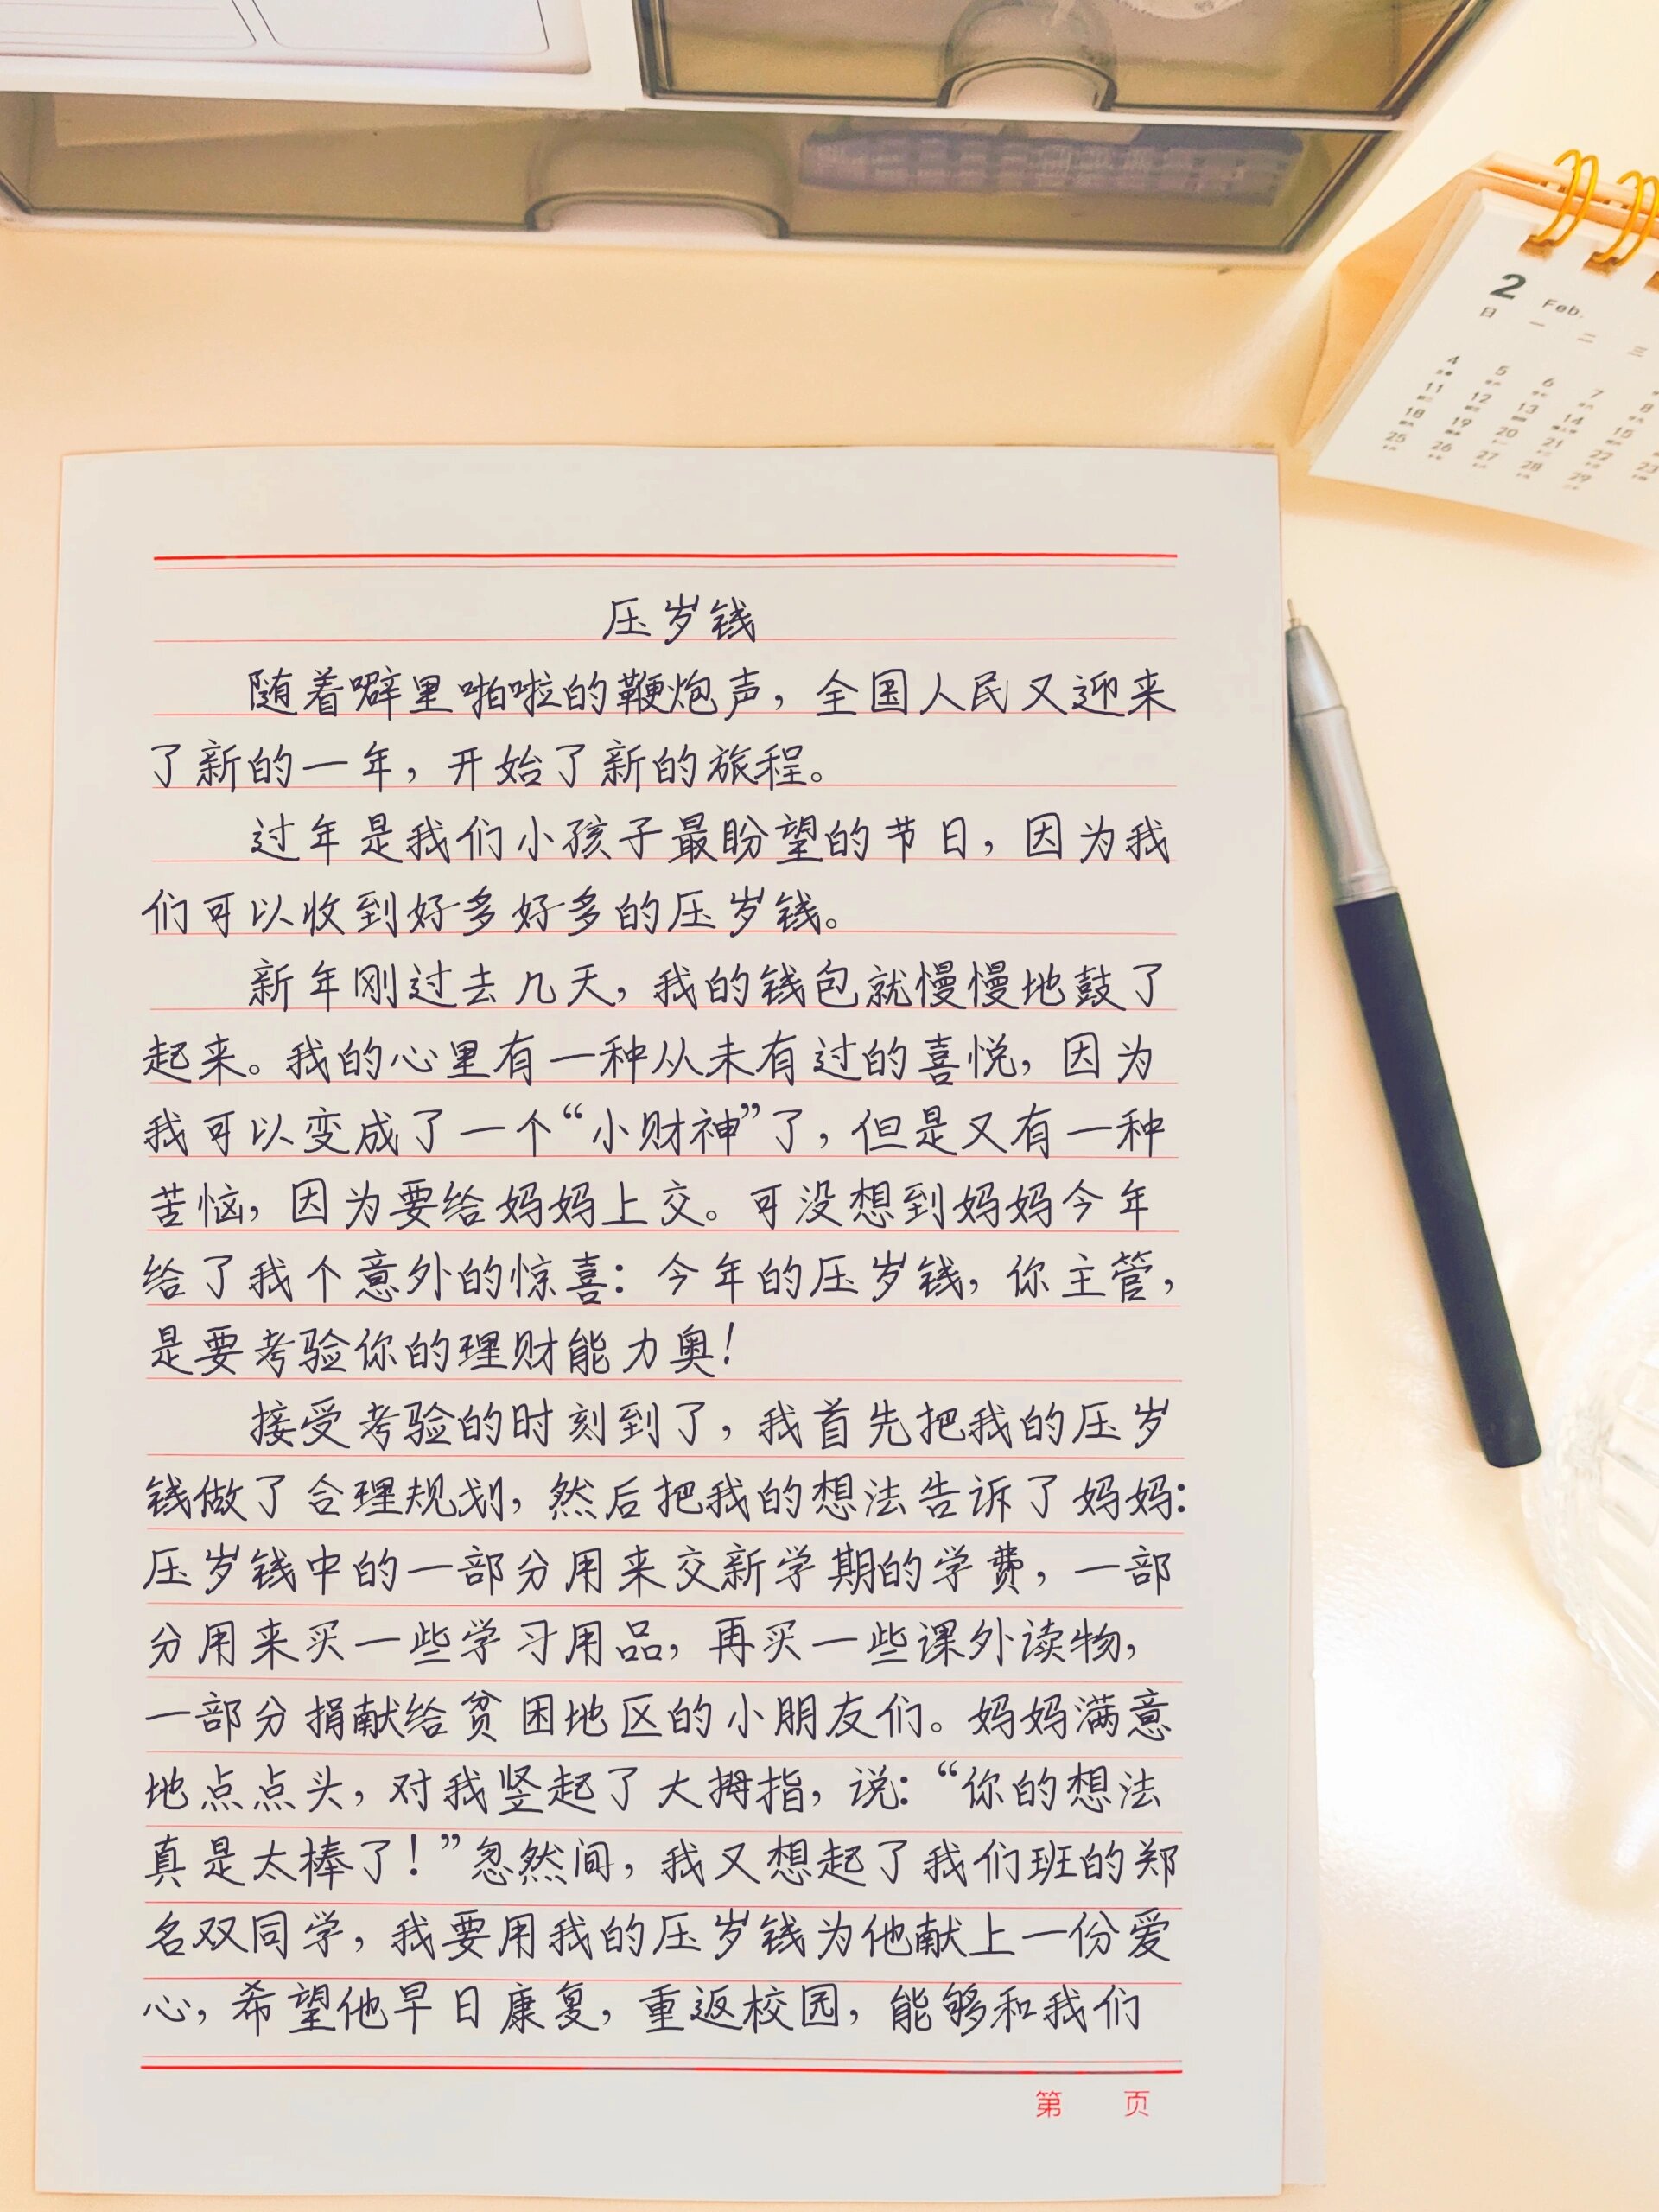 2 Feb.
日 一 二 三
4 5 6 7 8
11 12 13 14 15
18 19 20 21 22 23
25 26 27 28 29
压岁钱
随着噼里啪啦的鞭炮声，全国人民又迎来
了新的一年，开始了新的旅程。
过年是我们小孩子最盼望的节日，因为我
们可以收到好多好多的压岁钱。
新年刚过去几天，我的钱包就慢慢地鼓了
起来。我的心里有一种从未有过的喜悦，因为
我可以变成了一个“小财神”了，但是又有一种
苦恼，因为要给妈妈上交。可没想到妈妈今年
给了我个意外的惊喜：今年的压岁钱，你主管，
是要考验你的理财能力奥！
接受考验的时刻到了，我首先把我的压岁
钱做了合理规划，然后把我的想法告诉了妈妈：
压岁钱中的一部分用来交新学期的学费，一部
分用来买一些学习用品，再买一些课外读物，
一部分捐献给贫困地区的小朋友们。妈妈满意
地点点头，对我竖起了大拇指，说：“你的想法
真是太棒了！”忽然间，我又想起了我们班的郑
名双同学，我要用我的压岁钱为他献上一份爱
心，希望他早日康复，重返校园，能够和我们
第 页